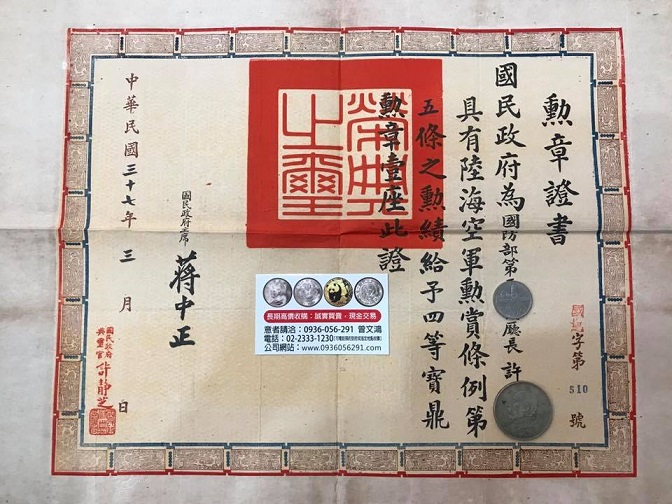 勲章證書
國民政府為國防部第
廳長許
具有陸海空軍勲賞條例第
五條之勲績給予四等寶鼎
勲章壹座此證
榮典之璽
國民政府主席
蔣中正
中華民國三十七年三月
日
國民政府
典璽官
許靜芝
字第
510
號
長期高價收購：誠實買賣，現金交易
意者請洽：0936-056-291 曾文鴻
電話：02-2333-1230
公司網站：www.0936056291.com